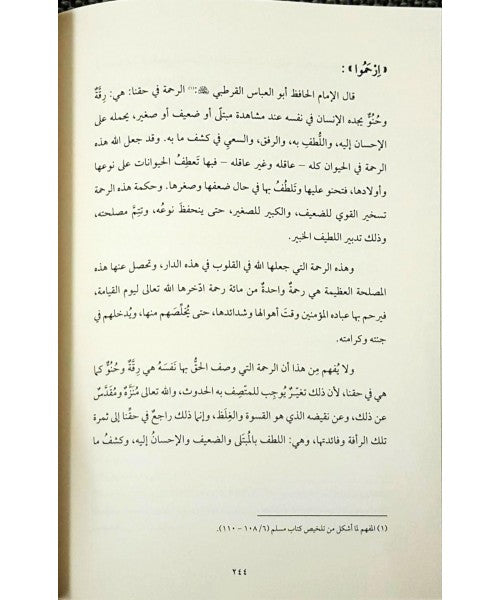 «اِرْحَمُوا» :
قال الإمام الحافظ أبو العباس القرطبي ﵀:(١) الرحمة في حقنا: هي: رِقَّةٌ
وحُنُوٌّ يجده الإنسان في نفسه عند مشاهدة مبتلًى أو ضعيف أو صغير، يحمله على
الإحسان إليه، واللُّطفِ به، والرفق، والسعيِ في كشف ما به. وقد جعل الله هذه
الرحمة في الحيوان كله – عاقله وغير عاقله – فبها تَعطِفُ الحيوانات على نوعها
وأولادها، فتحنو عليها وتَلطُفُ بها في حال ضعفها وصغرها. وحكمة هذه الرحمة
تسخير القوي للضعيف، والكبير للصغير، حتى ينحفظَ نوعُه، وتتِمَّ مصلحته،
وذلك تدبير اللطيف الخبير.
وهذه الرحمة التي جعلها الله في القلوب في هذه الدار، وتحصل عنها هذه
المصلحة العظيمة هي رحمةٌ واحدةٌ من مائة رحمة ادّخرها الله تعالى ليوم القيامة،
فيرحم بها عباده المؤمنين وقتَ أهوالها وشدائدها، حتى يُخلِّصَهم منها، ويُدخلهم في
جنته وكرامته.
ولا يُفهم مِن هذا أن الرحمة التي وصف الحقُّ بها نَفسَهُ هي رِقَّةٌ وحُنُوٌّ كما
هي في حقنا، لأن ذلك تغيّرٌ يُوجِب للمتّصِف به الحدوث، والله تعالى مُنَزَّهٌ ومُقَدَّسٌ
عن ذلك، وعن نقيضه الذي هو القسوة والغِلَظ، وإنما ذلك راجعٌ في حقِّنا إلى ثمرة
تلك الرأفة وفائدتها، وهي: اللطف بالمُبتَلى والضعيف والإحسانُ إليه، وكشفُ ما
(١) المفهم لما أشكل من تلخيص كتاب مسلم (٦/ ١٠٨ – ١١٠).
٢٤٤